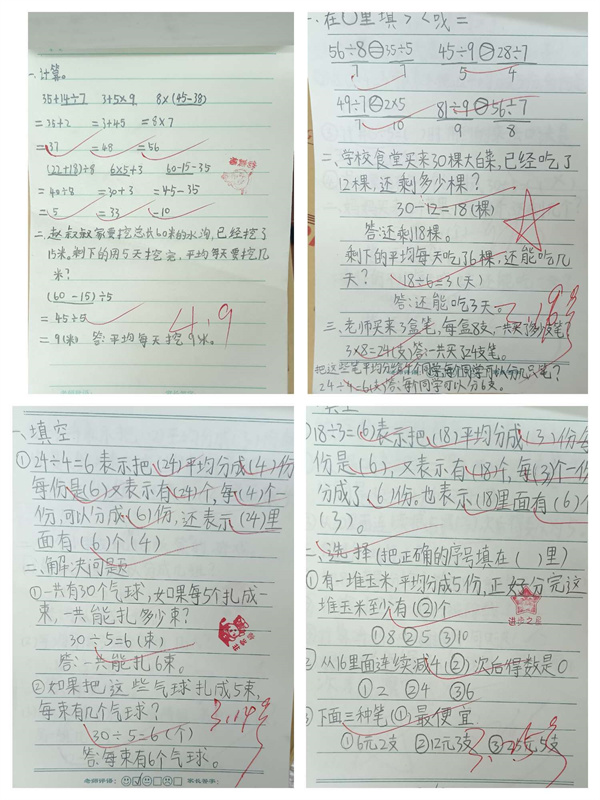 一、计算。
35+14÷7 3+5×9 8×(45-38)
=35+2 =3+45 =8×7
=37 =48 =56
(22+18)÷8 6×5+3 60-15-35
=40÷8 =30+3 =45-35
=5 =33 =10
二、赵叔叔家要挖总长60米的水沟,已经挖了
15米。剩下的用5天挖完,平均每天要挖几
米?
(60-15)÷5
=45÷5
=9(米) 答:平均每天挖9米。
4.9
一、在○里填>、<或=
56÷8=35÷5 45÷9>28÷7
7 7 5 4
49÷7<2×5 81÷9>56÷7
7 10 9 8
二、学校食堂买来30棵大白菜,已经吃了
12棵,还剩多少棵?
30-12=18(棵)
答:还剩18棵。
剩下的平均每天吃6棵,还能吃几
天?
18÷6=3(天)
答:还能吃3天。
三、老师买来3盒笔,每盒8支,一共买了多少支笔?
3×8=24(支)答:一共买了24支笔。
24÷4=6(支)答:每个同学可以分6支。
一、填空
①24÷4=6表示把(24)平均分成(4)份
每份是(6)又表示有(24)个,每(4)个一
份,可以分成(6)份,还表示(24)里
面有(6)个(4)
二、解决问题
①一共有30个气球,如果每5个扎成一
束,一共能扎多少束?
30÷5=6(束)
答:一共能扎6束。
②如果把这些气球扎成5束,
每束有几个气球?
30÷5=6(个)
答:每束有6个气球。
3.14
老师评语: 家长签字:
18÷3=(6)表示把(18)平均分成(3)份每
份是(6),又表示有(18)个,每(3)个一份
分成了(6)份。也表示(18)里面有(6)个
(3)。
二、选择(把正确的序号填在( )里)
①有一堆玉米,平均分成5份,正好分完这
堆玉米至少有(②)个
①8 ②5 ③10
② 从16里面连续减4(②)次后得数是0
①2 ②4 ③6
③ 下面三种笔(①)最便宜
①6元2支 ②12元3支 ③25元5支